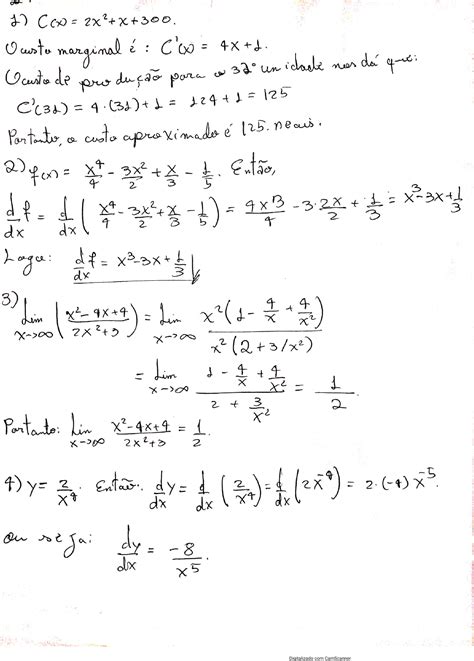 1) C(x) = 2x²+x+300.
O custo marginal é : C'(x) = 4x+1.
O custo de produção para a 32° unidade nos dá que:
C'(31) = 4·(31)+1 = 124+1 = 125
Portanto, o custo aproximado é 125 reais.
2) f(x) = x⁴/4 - 3x²/2 + x/3 - 1/5. Então,
d/dx f = d/dx (x⁴/4 - 3x²/2 + x/3 - 1/5) = 4x³/4 - 3·2x/2 + 1/3 = x³-3x+1/3
Logo: d/dx f = x³-3x+1/3
3) Lim x→∞ (x²-4x+4 / 2x²+3) = Lim x→∞ x²(1 - 4/x + 4/x²) / x²(2+3/x²)
= Lim x→∞ 1 - 4/x + 4/x² / 2 + 3/x² = 1/2
Portanto: Lim x→∞ x²-4x+4 / 2x²+3 = 1/2.
4) y = 2/x⁴. Então: dy/dx = d/dx (2/x⁴) = d/dx (2x⁻⁴) = 2·(-4) x⁻⁵.
ou seja: dy/dx = -8/x⁵.
Digitalizado com CamScanner